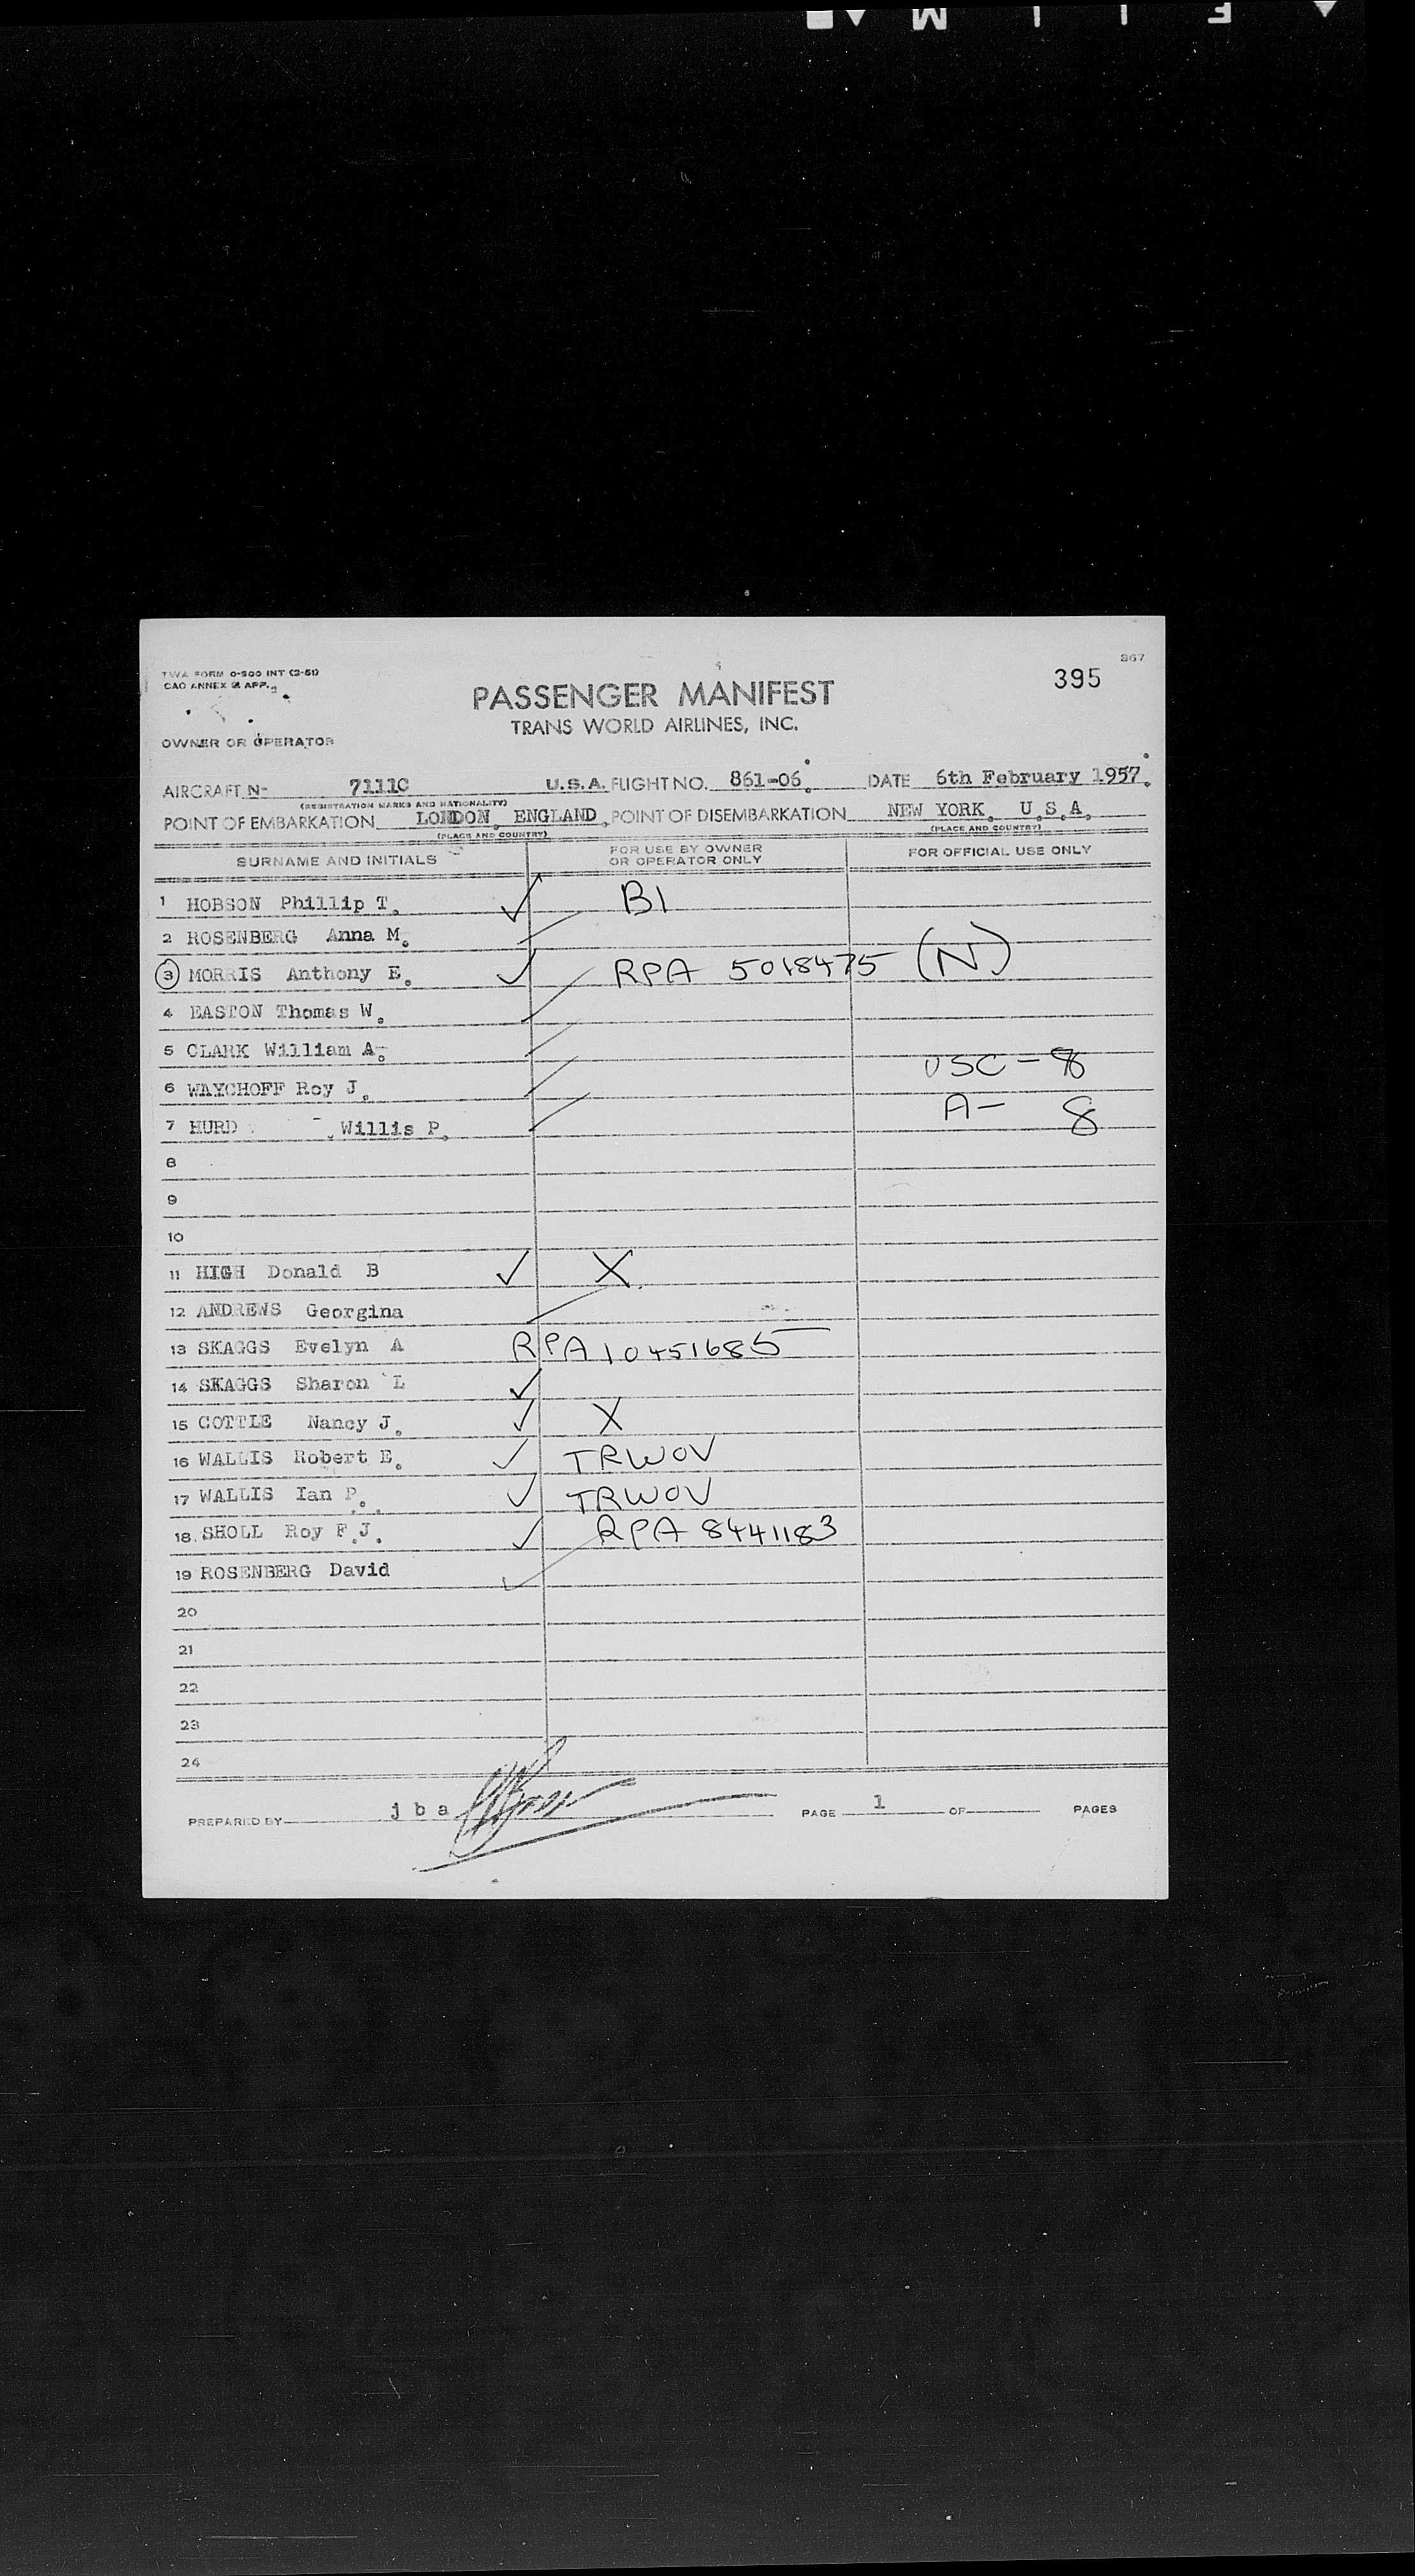 FILM
867
TWA FORM 0-900 INT (2-51)
CAO ANNEX 9 APP. 2
395
PASSENGER MANIFEST
TRANS WORLD AIRLINES, INC.
OWNER OR OPERATOR
AIRCRAFT N- 7111C U.S.A. FLIGHT NO. 861-06. DATE 6th February 1957.
(REGISTRATION MARKS AND NATIONALITY)
POINT OF EMBARKATION LONDON, ENGLAND, POINT OF DISEMBARKATION NEW YORK, U.S.A.
(PLACE AND COUNTRY) (PLACE AND COUNTRY)
SURNAME AND INITIALS FOR USE BY OWNER OR OPERATOR ONLY FOR OFFICIAL USE ONLY
1 HOBSON Phillip T. ✓ B1
2 ROSENBERG Anna M.
3 MORRIS Anthony E. ✓ RPA 5018475 (N)
4 EASTON Thomas W.
5 CLARK William A.
6 WAYCHOFF Roy J. USC - 8
7 HURD , Willis P. A - 8
8
9
10
11 HIGH Donald B ✓ X
12 ANDREWS Georgina
13 SKAGGS Evelyn A RPA 10451685
14 SKAGGS Sharon L ✓
15 COTTLE Nancy J. ✓ X
16 WALLIS Robert E. ✓ TRWOV
17 WALLIS Ian P. ✓ TRWOV
18 SHOLL Roy F.J. ✓ RPA 8441183
19 ROSENBERG David ✓
20
21
22
23
24
PREPARED BY j b a PAGE 1 OF PAGES